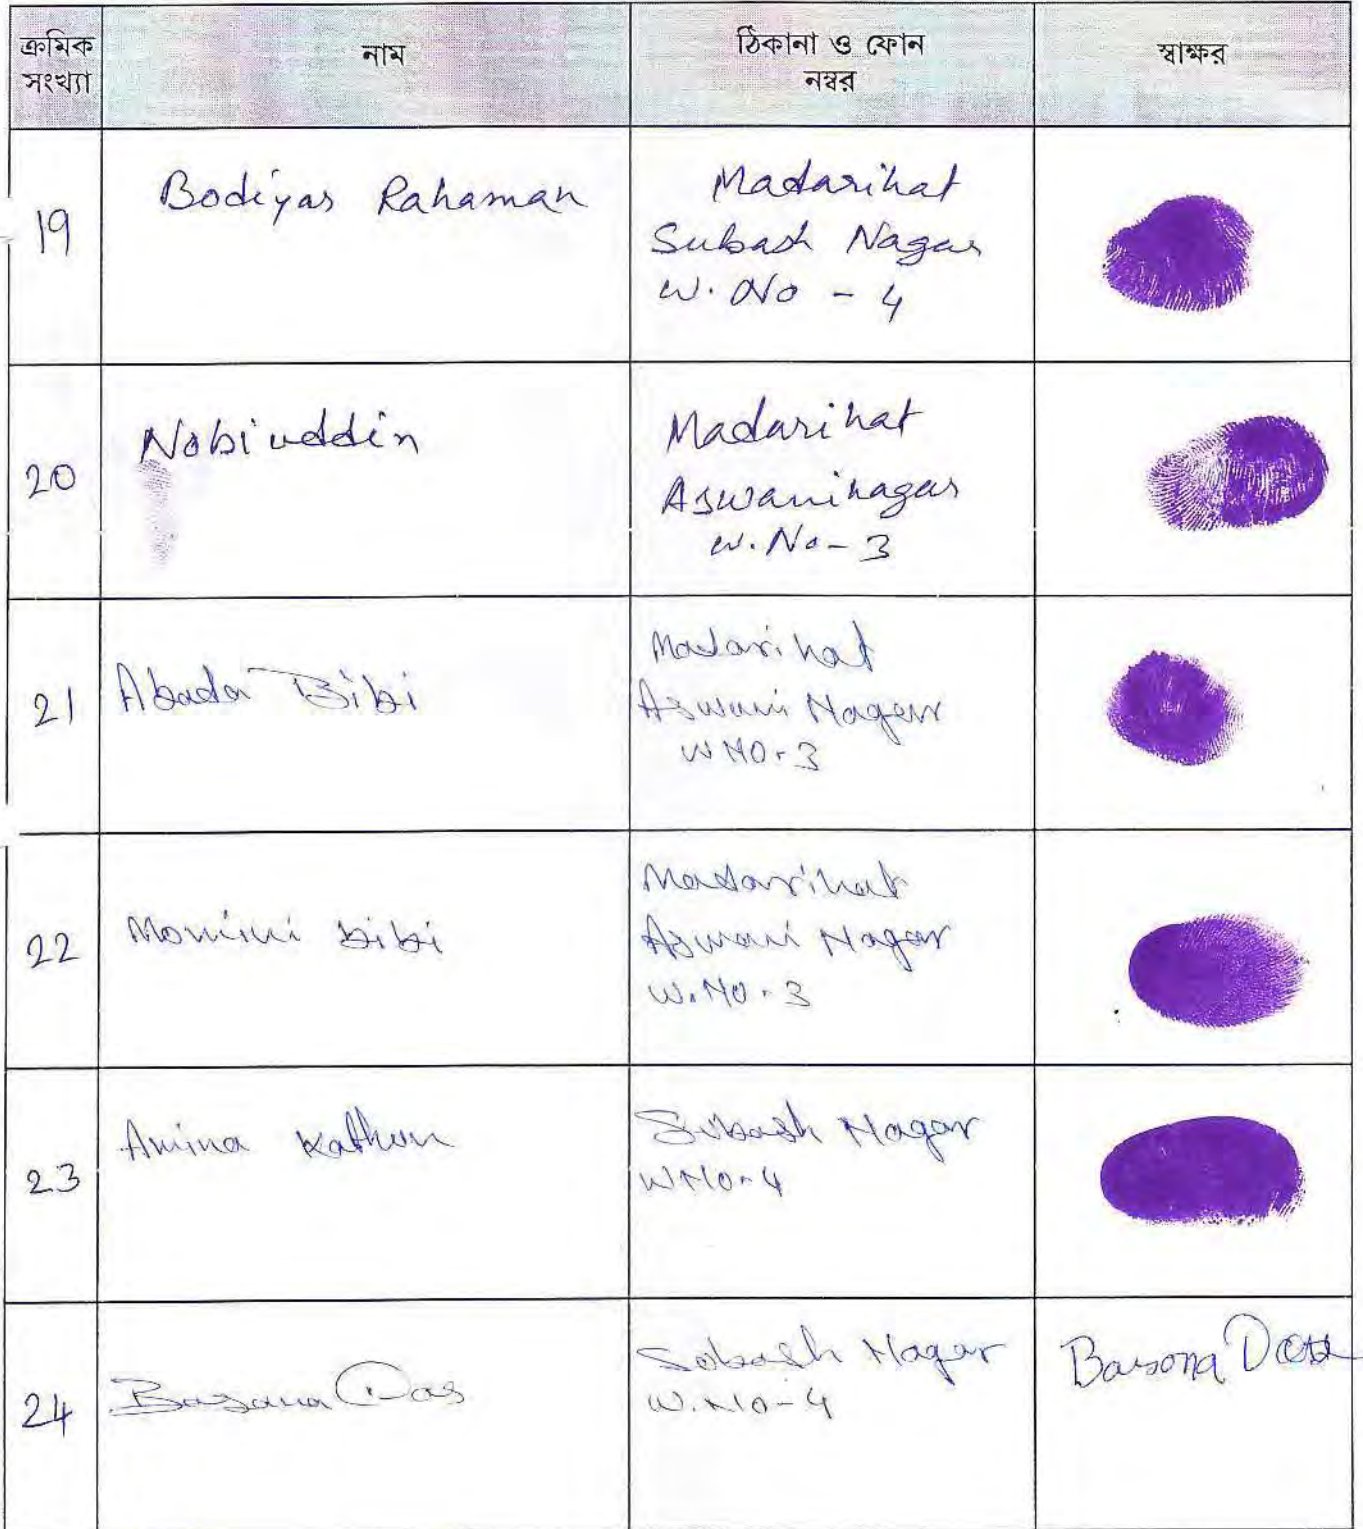 ক্রমিক
সংখ্যা
নাম
ঠিকানা ও ফোন
নম্বর
স্বাক্ষর
19
Bodiyar Rahaman
Madarihat
Subash Nagar
W. No - 4
20
Nobiuddin
Madarihat
Aswaninagar
W. No - 3
21
Abada Bibi
Madarihat
Aswani Nagar
W NO - 3
22
Momini bibi
Madarihat
Aswani Nagar
W. NO - 3
23
Amina Kathun
Subash Nagar
W NO - 4
24
Basana Das
Sobash Nagar
W. NO - 4
Basona Das